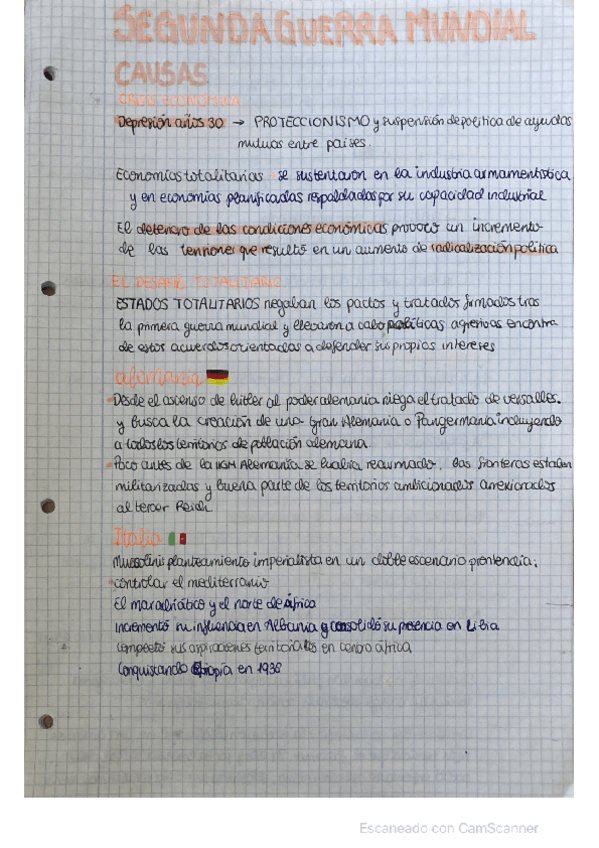 SEGUNDA GUERRA MUNDIAL
CAUSAS
CRISIS ECONÓMICA
Depresión años 30 → PROTECCIONISMO y suspensión de política de ayudas
mutuas entre países.
Economías totalitarias se sustentaron en la industria armamentística
y en economías planificadas respaldadas por su capacidad industrial
El deterioro de las condiciones económicas provocó un incremento
de las tensiones que resultó en un aumento de radicalización política
EL DESAFÍO TOTALITARIO
ESTADOS TOTALITARIOS negaban los pactos y tratados firmados tras
la primera guerra mundial y llevaron a cabo políticas agresivas en contra
de estos acuerdos orientadas a defender sus propios intereses
alemania
Desde el ascenso de hitler al poder alemania niega el tratado de versalles.
y busca la creación de una Gran Alemania o Pangermania incluyendo
a todos los territorios de población alemana
Poco antes de la IIGM Alemania se había rearmado. las fronteras estaban
militarizadas y buena parte de los territorios ambicionados anexionados
al tercer Reich
Italia
Mussolini planteamiento imperialista en un doble escenario pretendía:
controlar el mediterraneo
El mar adriático y el norte de África
Incrementó su influencia en Albania y consolidó su presencia en Libia
completó sus aspiraciones territoriales en centro áfrica
Conquistando Etiopía en 1936
Escaneado con CamScanner